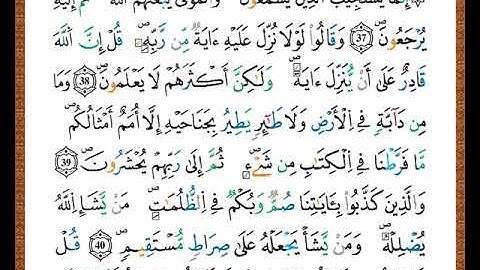 إِنَّمَا يَسْتَجِيبُ الَّذِينَ يَسْمَعُونَ ۖ وَالْمَوْتَىٰ يَبْعَثُهُمُ اللَّهُ ثُمَّ إِلَيْهِ
يُرْجَعُونَ ۖ 37 وَقَالُوا لَوْلَا نُزِّلَ عَلَيْهِ ءَايَةٌ مِّن رَّبِّهِۦ ۖ قُلْ إِنَّ اللَّهَ
قَادِرٌ عَلَىٰ أَنْ يُّنَزِّلَ ءَايَةً ۖ وَلَٰكِنَّ أَكْثَرَهُمْ لَا يَعْلَمُونَ ۖ 38 وَمَا
مِن دَآبَّةٍ فِي الْأَرْضِ وَلَا طَٰٓئِرٍ يَطِيرُ بِجَنَاحَيْهِ إِلَّا أُمَمٌ أَمْثَالُكُم ۖ
مَّا فَرَّطْنَا فِي الْكِتَٰبِ مِن شَيْءٍ ۖ ثُمَّ إِلَىٰ رَبِّهِمْ يُحْشَرُونَ ۖ 39
وَالَّذِينَ كَذَّبُوا بِـَٔايَٰتِنَا صُمٌّ وَبُكْمٌ فِي الظُّلُمَٰتِ ۖ مَنْ يَّشَإِ اللَّهُ
يُضْلِلْهُ ۖ وَمَنْ يَّشَأْ يَجْعَلْهُ عَلَىٰ صِرَاطٍ مُّسْتَقِيمٍ ۖ 40 قُلْ